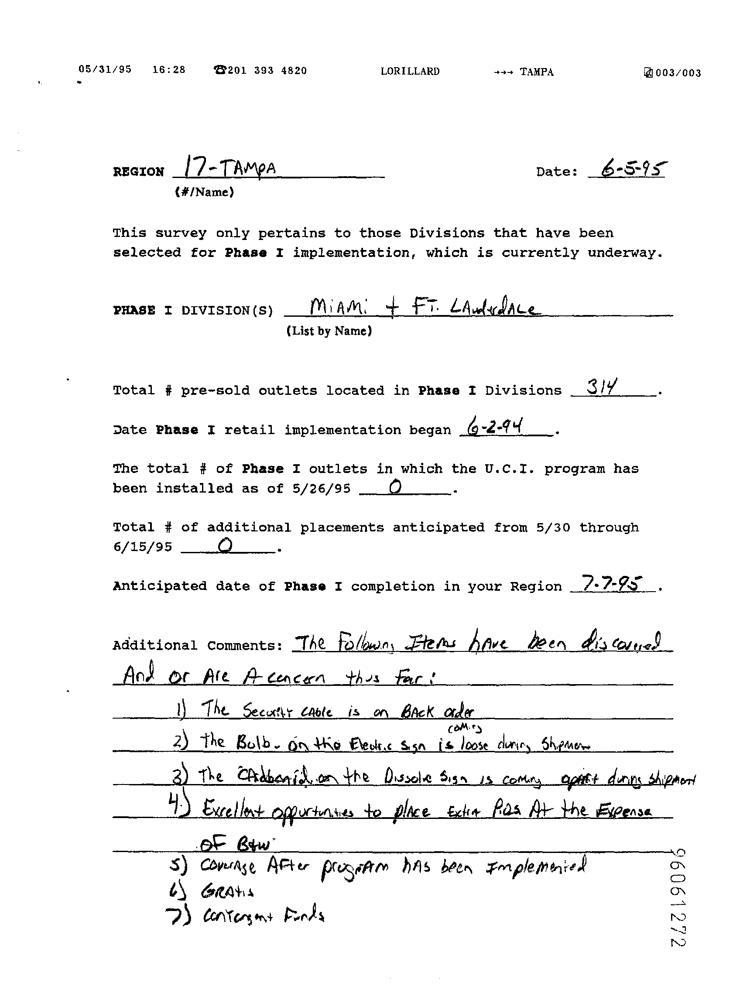 05/31/95 16:28 ☎201 393 4820 LORILLARD →→→ TAMPA 003/003
REGION 17-TAMPA Date: 6-5-95
(#/Name)
This survey only pertains to those Divisions that have been
selected for Phase I implementation, which is currently underway.
PHASE I DIVISION(S) MiAMi + FT. LAuderdALe
(List by Name)
Total # pre-sold outlets located in Phase I Divisions 314.
Date Phase I retail implementation began 6-2-94.
The total # of Phase I outlets in which the U.C.I. program has
been installed as of 5/26/95 0.
Total # of additional placements anticipated from 5/30 through
6/15/95 0.
Anticipated date of Phase I completion in your Region 7-7-95.
Additional Comments: The Following Items hAve been discovered
And or Are A concern thus far:
1) The Security cAble is on BAck order
2) The Bulb on the Electric Sign is coming loose during Shipment
3) The CArdboard on the Dissolve Sign is coming apart during shipment
4.) Excellent oppurtunities to plAce Extra P.O.S At the Expense
OF B+W.
5) coverAge AFter progrAm hAs been Implemented
6) GRAtis
7) Contengent Funds
96061272